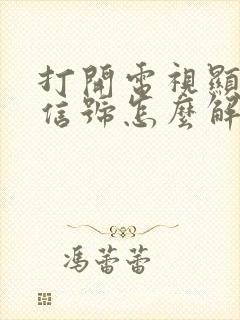 打開電視顯
信號怎麼解
馮蕾蕾